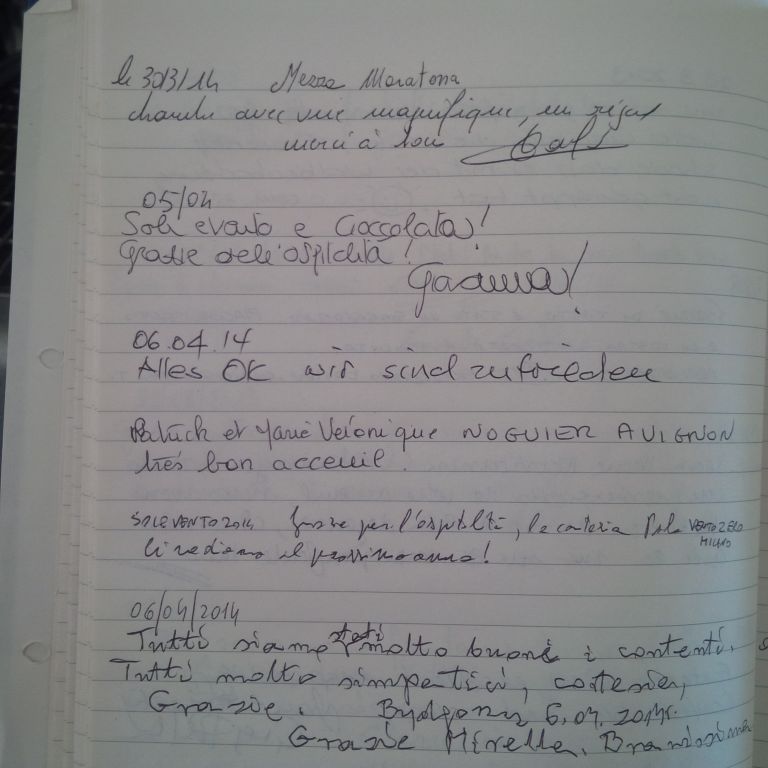 le 30/3/14 Mezza Maratona
chambre avec vue magnifique, un régal
merci à
05/04
Sole vento e Cioccolata!
Grazie dell'ospitalità!
06.04.14
Alles OK wir sind zufrieden
Patrick et Marie Véronique NOGUIER AVIGNON
très bon acceuil.
SOLEVENTO2014 per l'ospitalità, la cortesia VENTOZERO
Ci vediamo il prossimo anno!
06/04/2014
Tutti siamo stati molto buoni i contenti.
Tutti molto simpatici, cortesia,
Grazie. Bydgoszcz 6.04.2014r.
Grazie Mirella,